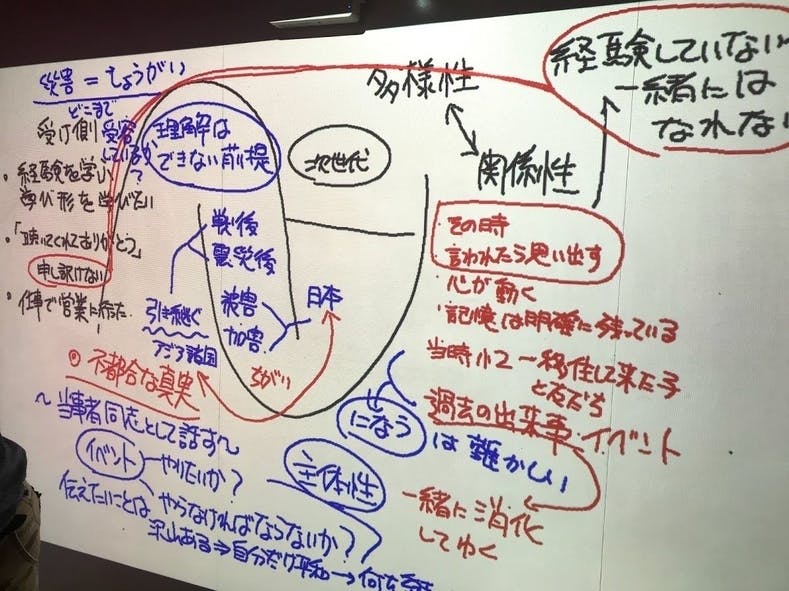 災害 = しょうがい
どこまで
受け側 受容
しているか
?
理解は
できない前提
・経験を学ぶ
学び形を学びたい
・「聴いてくれてありがとう」
申し訳けない
・仕事で営業に行った
次世代
多様性
関係性
経験していない
一緒には
なれない
戦後
震災後
引き継ぐ
アジア諸国
被害
加害
日本
ちがい
その時
言われたら思い出す
・心が動く
・記憶は明確に残っている
当時小2 ー 移住して来た子
と友だち
過去の出来事・イベント
になう は難かしい
一緒に消化
してゆく
◎不都合な真実
〜当事者同志として話す〜
イベント ー やりたいか?
やらなければならないか?
主体性
伝えたいことは
沢山ある⇒自分だけ平和→何を